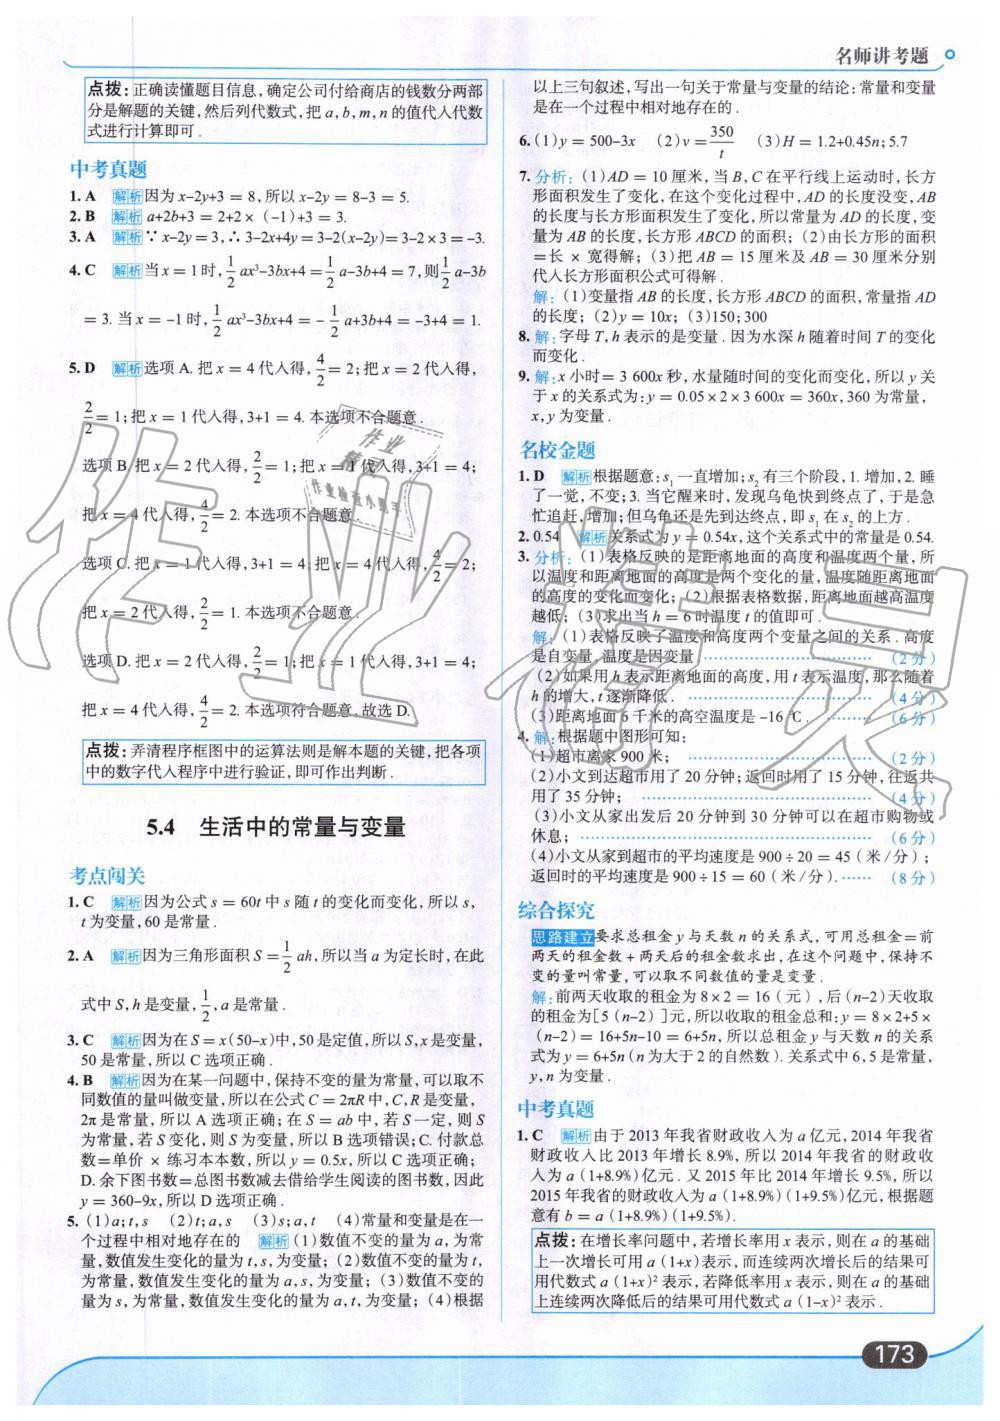 名师讲考题
点拨:正确读懂题目信息,确定公司付给商店的钱数分两部
分是解题的关键,然后列代数式,把 a,b,m,n 的值代入代数
式进行计算即可.
中考真题
1. A 解析 因为 x-2y+3 = 8,所以 x-2y = 8-3 = 5.
2. B 解析 a+2b+3 = 2+2×(-1)+3 = 3.
3. A 解析 ∵ x-2y = 3,∴ 3-2x+4y = 3-2(x-2y)= 3-2×3 = -3.
4. C 解析 当 x = 1 时,1/2 ax³-3bx+4 = 1/2 a-3b+4 = 7,则 1/2 a-3b
= 3. 当 x = -1 时,1/2 ax³-3bx+4 = - 1/2 a+3b+4 = -3+4 = 1.
5. D 解析 选项 A. 把 x = 4 代入得,4/2 = 2;把 x = 2 代入得,
2/2 = 1;把 x = 1 代入得,3+1 = 4. 本选项不合题意.
选项 B. 把 x = 2 代入得,2/2 = 1;把 x = 1 代入得,3+1 = 4;
把 x = 4 代入得,4/2 = 2. 本选项不合题意.
选项 C. 把 x = 1 代入得,3+1 = 4;把 x = 4 代入得,4/2 = 2;
把 x = 2 代入得,2/2 = 1. 本选项不合题意.
选项 D. 把 x = 2 代入得,2/2 = 1;把 x = 1 代入得,3+1 = 4;
把 x = 4 代入得,4/2 = 2. 本选项符合题意. 故选 D.
点拨:弄清程序框图中的运算法则是解本题的关键,把各项
中的数字代入程序中进行验证,即可作出判断.
5.4 生活中的常量与变量
考点闯关
1. C 解析 因为公式 s = 60t 中 s 随 t 的变化而变化,所以 s,
t 为变量,60 是常量.
2. A 解析 因为三角形面积 S = 1/2 ah,所以当 a 为定长时,在此
式中 S,h 是变量,1/2,a 是常量.
3. C 解析 因为在 S = x(50-x)中,50 是定值,所以 S,x 是变量,
50 是常量,所以 C 选项正确.
4. B 解析 因为在某一问题中,保持不变的量为常量,可以取不
同数值的量叫做变量,所以在公式 C = 2πR 中,C,R 是变量,
2π 是常量,所以 A 选项正确;在 S = ab 中,若 S 一定,则 S
为常量,若 S 变化,则 S 为变量,所以 B 选项错误;C. 付款总
数=单价 × 练习本本数,所以 y = 0.5x,所以 C 选项正确;
D. 余下图书数=总图书数减去借给学生阅读的图书数,因此
y = 360-9x,所以 D 选项正确.
5. (1)a;t,s (2)t;a,s (3)s;a,t (4)常量和变量是在一
个过程中相对地存在的 解析 (1)数值不变的量为 a,为常
量,数值发生变化的量为 t,s,为变量;(2)数值不变的量为 t,
为常量,数值发生变化的量为 a,s,为变量;(3)数值不变的
量为 s,为常量,数值发生变化的量为 a,t,为变量;(4)根据
以上三句叙述,写出一句关于常量与变量的结论:常量和变量
是在一个过程中相对地存在的.
6. (1)y = 500-3x (2)v = 350/t (3)H = 1.2+0.45n;5.7
7. 分析:(1)AD = 10 厘米,当 B,C 在平行线上运动时,长方
形面积发生了变化,在这个变化过程中,AD 的长度没变,AB
的长度与长方形面积发生了变化,所以常量为 AD 的长度,变
量为 AB 的长度,长方形 ABCD 的面积;(2)由长方形的面积
=长 × 宽得解;(3)把 AB = 15 厘米及 AB = 30 厘米分别
代入长方形面积公式可得解.
解:(1)变量指 AB 的长度,长方形 ABCD 的面积,常量指 AD
的长度;(2)y = 10x;(3)150;300
8. 解:字母 T,h 表示的是变量. 因为水深 h 随着时间 T 的变化
而变化.
9. 解:x 小时= 3 600x 秒,水量随时间的变化而变化,所以 y 关
于 x 的关系式为:y = 0.05×2×3 600x = 360x,360 为常量,
x,y 为变量.
名校金题
1. D 解析 根据题意:s₁ 一直增加;s₂ 有三个阶段,1. 增加,2. 睡
了一觉,不变;3. 当它醒来时,发现乌龟快到终点了,于是急
忙追赶,增加;但乌龟还是先到达终点,即 s₁ 在 s₂ 的上方.
2. 0.54 解析 关系式为 y = 0.54x,这个关系式中的常量是 0.54.
3. 分析:(1)表格反映的是距离地面的高度和温度两个量,所
以温度和距离地面的高度是两个变化的量,温度随距离地面
的高度的变化而变化;(2)根据表格数据,距离地面越高温度
越低;(3)求出当 h = 6 时温度 t 的值即可.
解:(1)表格反映了温度和高度两个变量之间的关系. 高度
是自变量,温度是因变量 ……………………(2分)
(2)如果用 h 表示距离地面的高度,用 t 表示温度,那么随着
h 的增大,t 逐渐降低. ……………………(4分)
(3)距离地面 6 千米的高空温度是 -16 ℃. ……(6分)
4. 解:根据题中图形可知:
(1)超市离家 900 米; ……………………(2分)
(2)小文到达超市用了 20 分钟;返回时用了 15 分钟,往返共
用了 35 分钟; ……………………(4分)
(3)小文从家出发后 20 分钟到 30 分钟可以在超市购物或
休息; ……………………(6分)
(4)小文从家到超市的平均速度是 900÷20 = 45(米/分);
返回时的平均速度是 900÷15 = 60(米/分).……(8分)
综合探究
思路建立 要求总租金 y 与天数 n 的关系式,可用总租金=前
两天的租金数+两天后的租金数求出,在这个问题中,保持不
变的量叫常量,可以取不同数值的量是变量.
解:前两天收取的租金为 8×2 = 16(元),后(n-2)天收取
的租金为[5(n-2)]元,所以收取的租金总和:y = 8×2+5×
(n-2)= 16+5n-10 = 6+5n,所以总租金 y 与天数 n 的关系
式为 y = 6+5n(n 为大于 2 的自然数). 关系式中 6,5 是常量,
y,n 为变量.
中考真题
1. C 解析 由于 2013 年我省财政收入为 a 亿元,2014 年我省
财政收入比 2013 年增长 8.9%,所以 2014 年我省财政收入
为 a(1+8.9%)亿元. 又 2015 年比 2014 年增长 9.5%,所以
2015 年我省的财政收入为 a(1+8.9%)(1+9.5%)亿元,根据题
意有 b = a(1+8.9%)(1+9.5%).
点拨:在增长率问题中,若增长率用 x 表示,则在 a 的基础
上一次增长可用 a(1+x)表示,而连续两次增长后的结果可
用代数式 a(1+x)² 表示,若降低率用 x 表示,则在 a 的基础
上连续两次降低后的结果可用代数式 a(1-x)² 表示.
173
作业精灵
作业精灵
作业检查小帮手